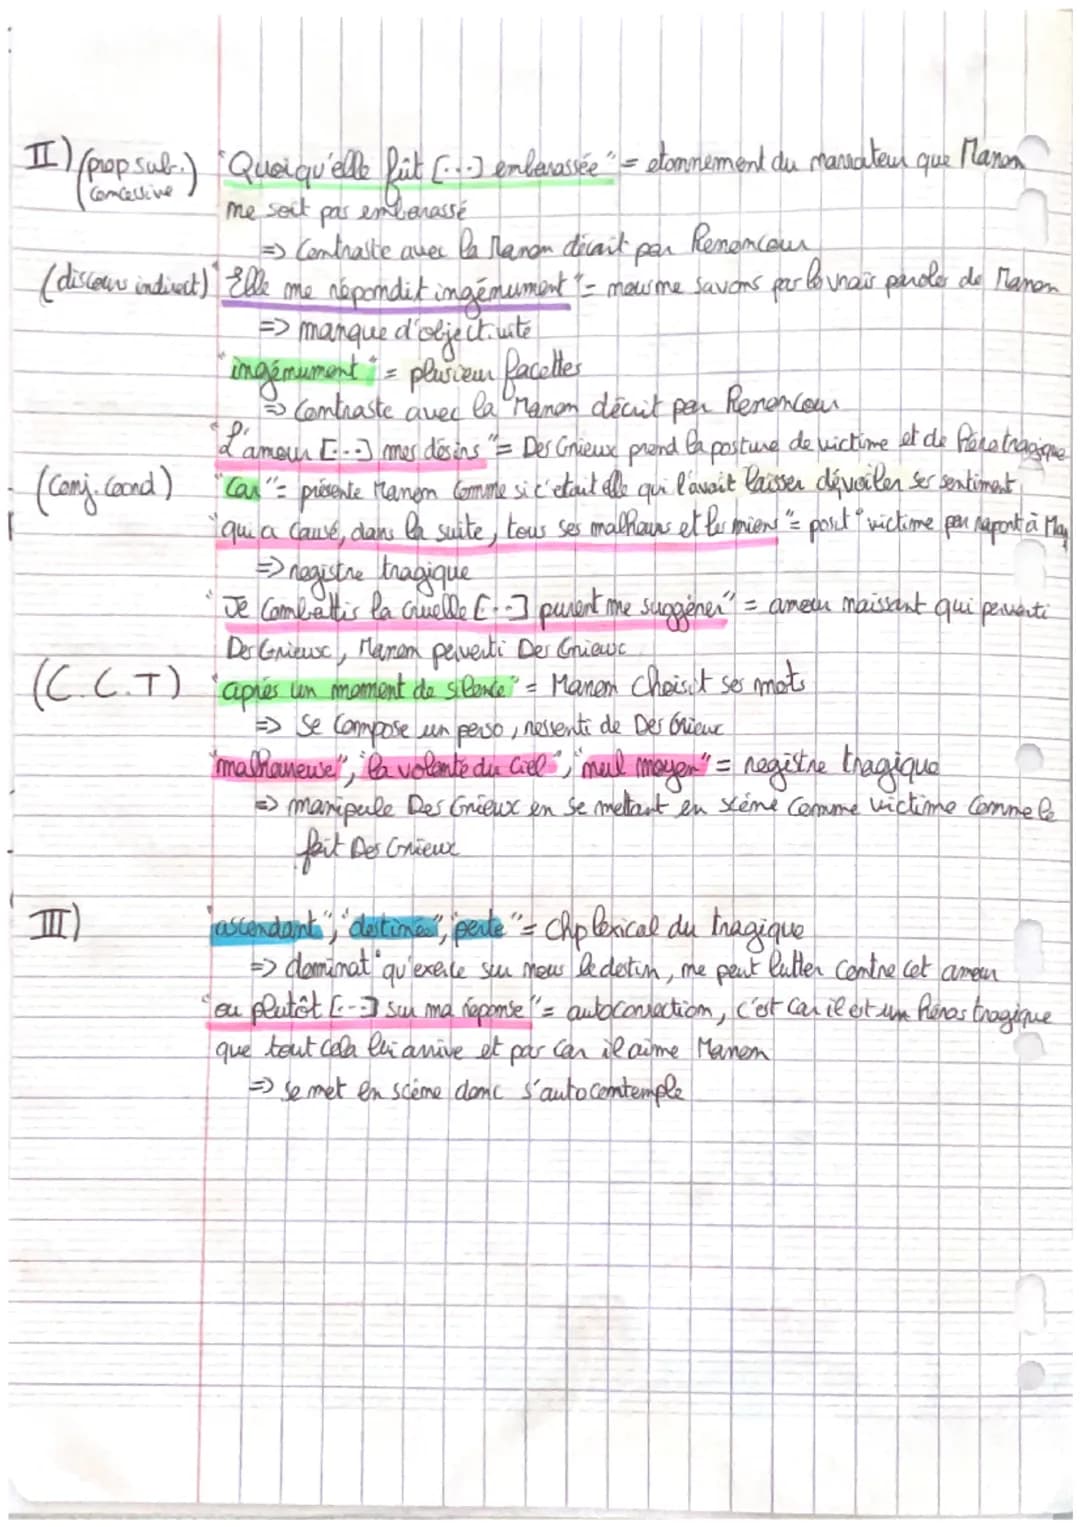 II) (prop sub. concessive) "Quoiqu'elle fût [...] embarassée" = etonnement du narrateur que Manon
ne soit pas embarassé
=> Contraste avec la Manon décrit par Renoncour
(discours indirect) "Elle me répondit ingénument" = nous ne savons pas les vrais paroles de Manon
=> manque d'objectivité
"ingénument" = plusieur facettes
=> Contraste avec la Manon décrit par Renoncour
"L'amour [...] mes désirs" = Des Grieux prend la posture de victime et de héro tragique
(Conj. Coord) "Car" = présente Manon comme si c'etait elle qui l'avait laisser dévoiler ses sentiment
"qui a causé, dans la suite, tous ses malheurs et les miens" = posit° victime par raport à Man
=> registre tragique
"Je combattis la cruelle [...] purent me suggérer" = amour naissant qui perverti
Des Grieux, Manon perverti Des Grieux
(C.C.T) "après un moment de silence" = Manon choisit ses mots
=> Se compose un perso, ressenti de Des Grieux
"malheureuse", "la volonté du Ciel", "nul moyen" = registre tragique
=> manipule Des Grieux en se mettant en scéne comme victime comme le
fait Des Grieux
III) "ascendant", "destinée", "perte" = chp lexical du tragique
=> dominat° qu'exerce sur nous le destin, ne peut lutter contre cet amour
"ou plutôt [...] sur ma réponse" = autocorrection, c'est car il est un héros tragique
que tout cela lui arrive et pas car il aime Manon
=> se met en scène donc s'autocontemple